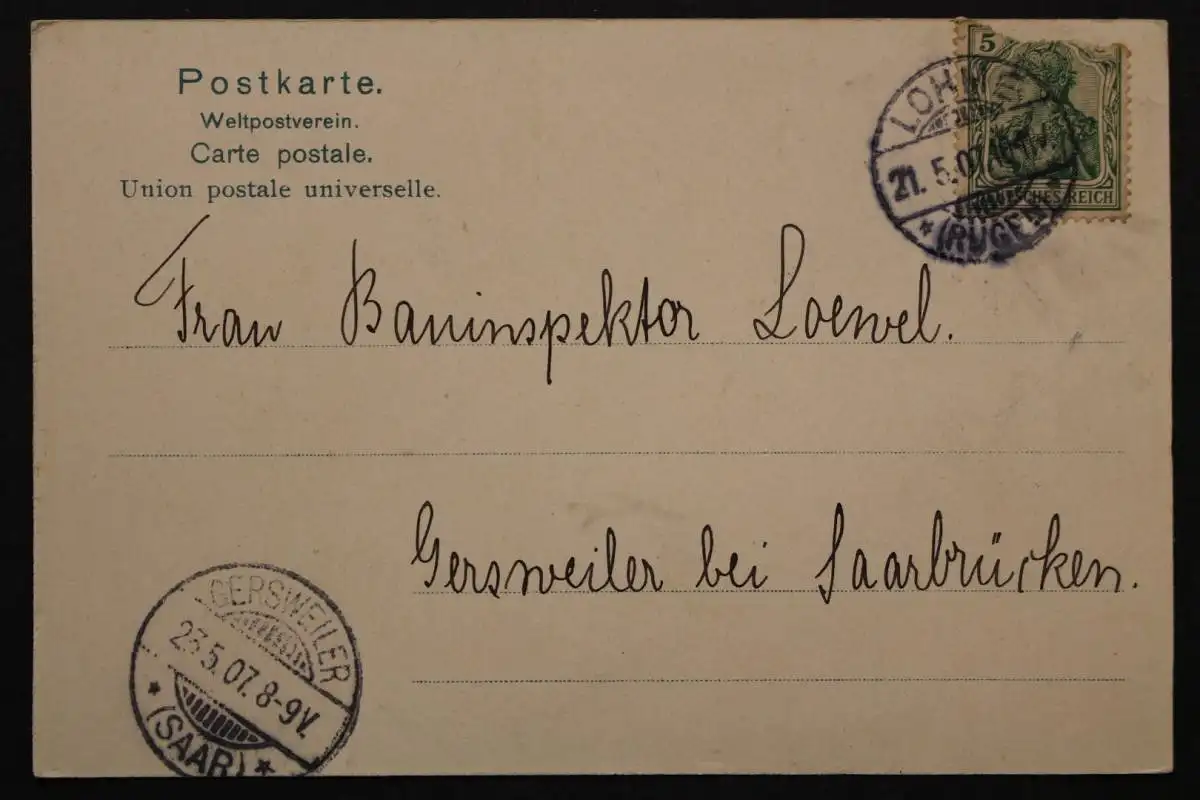 Postkarte.
Weltpostverein.
Carte postale.
Union postale universelle.
5
DEUTSCHES REICH
LOHME
21.5.07
*(RÜGEN)*
Frau Bauinspektor Loewel.
Gersweiler bei Saarbrücken.
GERSWEILER
23.5.07. 8-9V.
*(SAAR)*